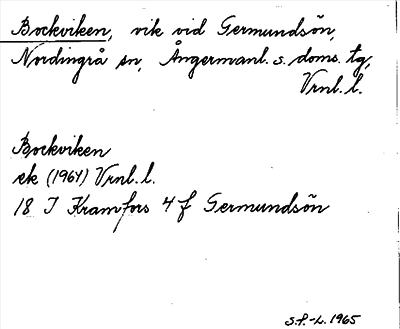 Bockviken, vik vid Germundsön,
Nordingrå sn, Ångermanl. s. doms. tg,
Vrnl. l.
Bockviken
ek (1964) Vrnl. l.
18 I Kramfors 4 f Germundsön
S.F.-L. 1965